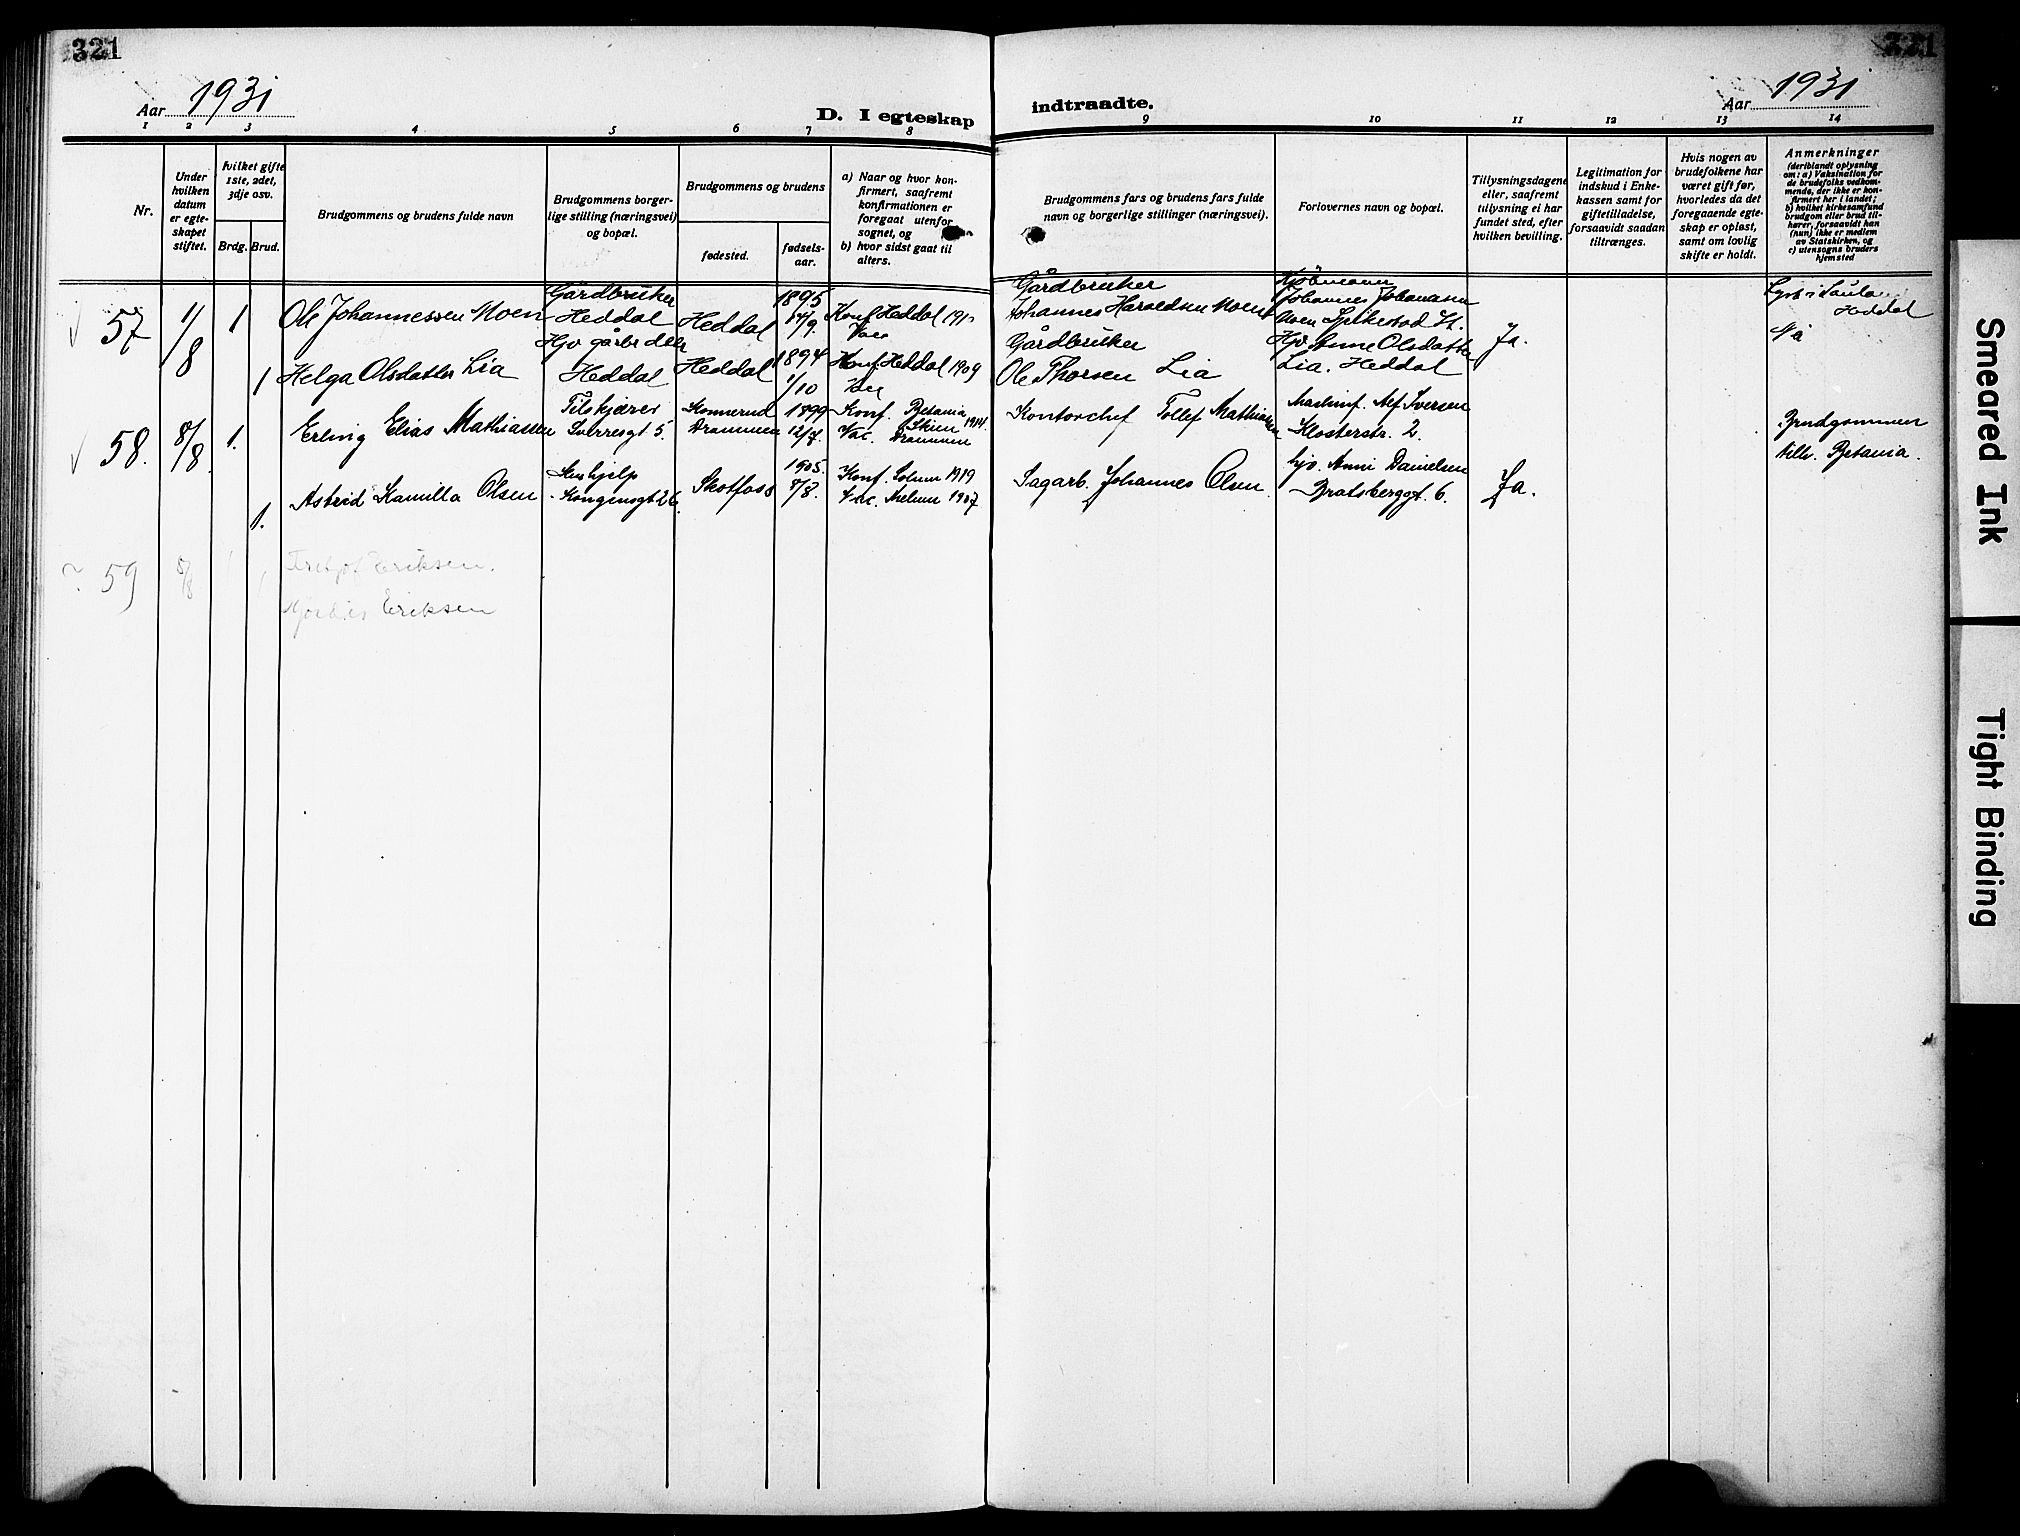 321
321
Aar 1931
D. I egteskap
indtraadte.
Aar 1931
1 2 3 4 5 6 7 8 9 10 11 12 13 14
Nr.
Under hvilken datum er egteskapet stiftet.
hvilket gifte 1ste, 2det, 3dje osv.
Brdg. Brud.
Brudgommens og brudens fulde navn
Brudgommens borgerlige stilling (næringsvei) og bopæl.
Brudgommens og brudens
fødested.
fødselsaar.
a) Naar og hvor konfirmert, saafremt konfirmationen er foregaat utenfor sognet, og
b) hvor sidst gaat til alters.
Brudgommens fars og brudens fars fulde navn og borgerlige stillinger (næringsvei).
Forlovernes navn og bopæl.
Tillysningsdagene eller, saafremt tillysning ei har fundet sted, efter hvilken bevilling.
Legitimation for indskud i Enkekassen samt for giftetilladelse, forsaavidt saadan tiltrænges.
Hvis nogen av brudefolkene har været gift før, hvorledes da det foregaaende egteskap er opløst, samt om lovlig skifte er holdt.
Anmerkninger
(deriblandt oplysning om: a) Vaksination for de brudefolks vedkommende, der ikke er konfirmert her i landet; b) hvilket kirkesamfund brudgom eller brud tilhører, forsaavidt han (hun) ikke er medlem av Statskirken, og c) utensogns bruders hjemsted
57 1/8 1 Ole Johannessen Moen
Gårdbruker
Heddal
Heddal
1895
Konf Heddal
Vacc
Gårdbruker
Johannes Haroldsen Moen
Johannes Johannsen
Moen Spikestad St.
Ja.
Heddal
1 Helga Olsdatter Lia
Heddal
Heddal
1894
1/10
Konf. Heddal 1909
Vac
Gårdbruker
Ole Thorsen Lia
Anne Olsdatter
Lia. Heddal
58. 8/8 1. Erling Elias Mathiassen
Tilskjærer
Sverresgt 5.
Konnerud
Drammen
1899
12/7.
Konf. Betania
Skien 1914.
Vac. Drammen
Kontorchef Tollef Mathiassen
Maskinf. Alf Iversen
Klosterstr. 2.
Brudgommen
tilh. Betania.
1. Astrid Kamilla Olsen
Hushjelp
Kongensgt 26.
Skotfoss
1905.
8/8.
Konf. Solum 1919
Vac. Melum 1907
Sagarb. Johannes Olsen.
hjv. Anni Danielsen
Bratsberggt. 6.
Ja.
59 8/8
Eriksen.
Eriksen
Smeared Ink
Tight Binding